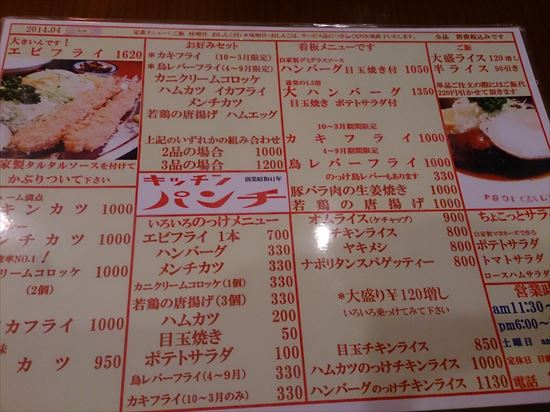 2014.04
定食メニュー(ご飯 味噌汁 おしんこ付)
*味噌汁・おしんこは、サービス品につきなくなり次第終了いたします。
全品 消費税込みです
大きいんです!
エビフライ 1620
自家製タルタルソースを付けて
かぶりついて下さい
ューム満点
キンカツ 1000
チカツ 1000
NO.1!
クリームコロッケ
(2個) 1000
カフライ 1100
カツ 950
お好みセット
*カキフライ(10~3月限定)
*鳥レバーフライ(4~9月限定)
カニクリームコロッケ
ハムカツ イカフライ
メンチカツ
若鶏の唐揚げ ハムエッグ
上記のいずれかの組み合わせ
2品の場合 1000
3品の場合 1200
キッチン パンチ
創業昭和41年
いろいろのっけメニュー
エビフライ 1本 700
ハンバーグ 330
メンチカツ 330
カニクリームコロッケ(1個) 330
若鶏の唐揚げ(3個) 330
ハムカツ 200
目玉焼き 50
ポテトサラダ 100
鳥レバーフライ(4~9月) 330
カキフライ(10~3月のみ) 330
看板メニューです
自家製デミグラスソース
ハンバーグ 目玉焼き付 1050
通常の1.5倍
大ハンバーグ 1350
目玉焼き ポテトサラダ付
10~3月期間限定
カキフライ 1000
4~9月期間限定
鳥レバーフライ 1000
のっけ鳥レバーもあります
豚バラ肉の生姜焼き 1000
若鶏の唐揚げ 1000
オムライス(ケチャップ) 900
チキンライス 800
ヤキメシ 800
ナポリタンスパゲッティー 800
*大盛り¥120増し
いろいろ乗っけてみて下さい
目玉チキンライス 850
ハムカツのっけチキンライス 1000
ハンバーグのっけチキンライス 1130
ご飯
大盛ライス 120増し
半ライス 50引き
単品ご注文の際にはご飯代
220円引かせて頂きます
ちょこっとサラ
自家製マヨネーズで作る
ポテトサラダ
トマトサラダ
ロースハムサラダ
営業
am11:30-
pm6:00~
土曜日 am
定休日 日曜
電話